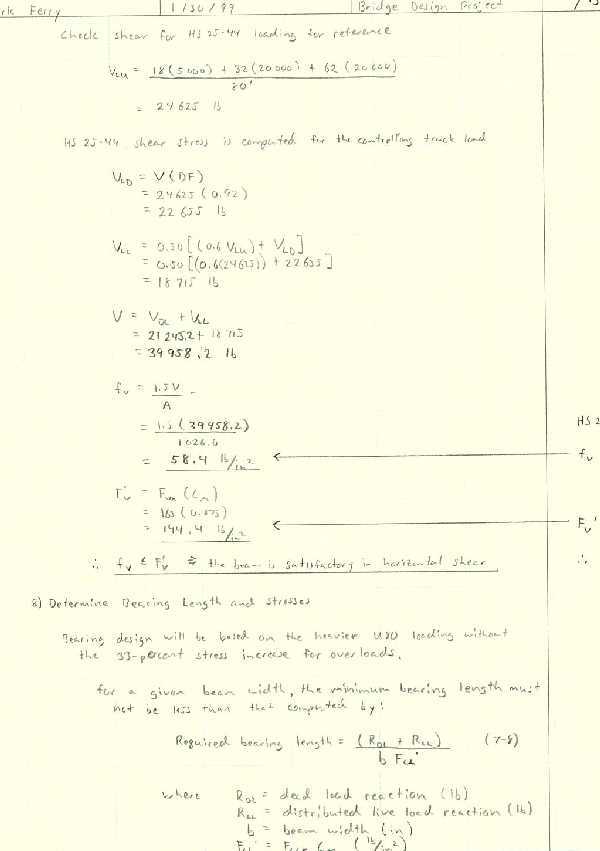 rk Ferry 1/30/97 Bridge Design Project
Check shear for HS 25-44 loading for reference
V_LU = 18(5000) + 32(20000) + 62(20000)
80'
= 24625 lb
HS 25-44 shear stress is computed for the controlling truck load
V_LD = V(DF)
= 24625 (0.92)
= 22655 lb
V_LL = 0.50 [(0.6 V_LU) + V_LD]
= 0.50 [(0.6(24625)) + 22655]
= 18715 lb
V = V_DL + V_LL
= 21245.2 + 18715
= 39958.2 lb
f_v = 1.5V
A
= 1.5 (39958.2)
HS 2
= 58.4 lb/in² f_v
F_v' = (C_m)
= 165 (0.875)
= 144.4 lb/in² F_v'
∴ f_v ≤ F_v' ⇒ the beam is satisfactory in horizontal shear ∴
8) Determine Bearing Length and stresses
Bearing design will be based on the heavier U80 loading without
the 33-percent stress increase for overloads.
for a given beam width, the minimum bearing length must
not be less than that computed by:
Required bearing length = (R_DL + R_LL) (7-8)
b F_c⊥'
where R_DL = dead load reaction (lb)
R_LL = distributed live load reaction (lb)
b = beam width (in)
F_c⊥' = C_m (lb/in²)